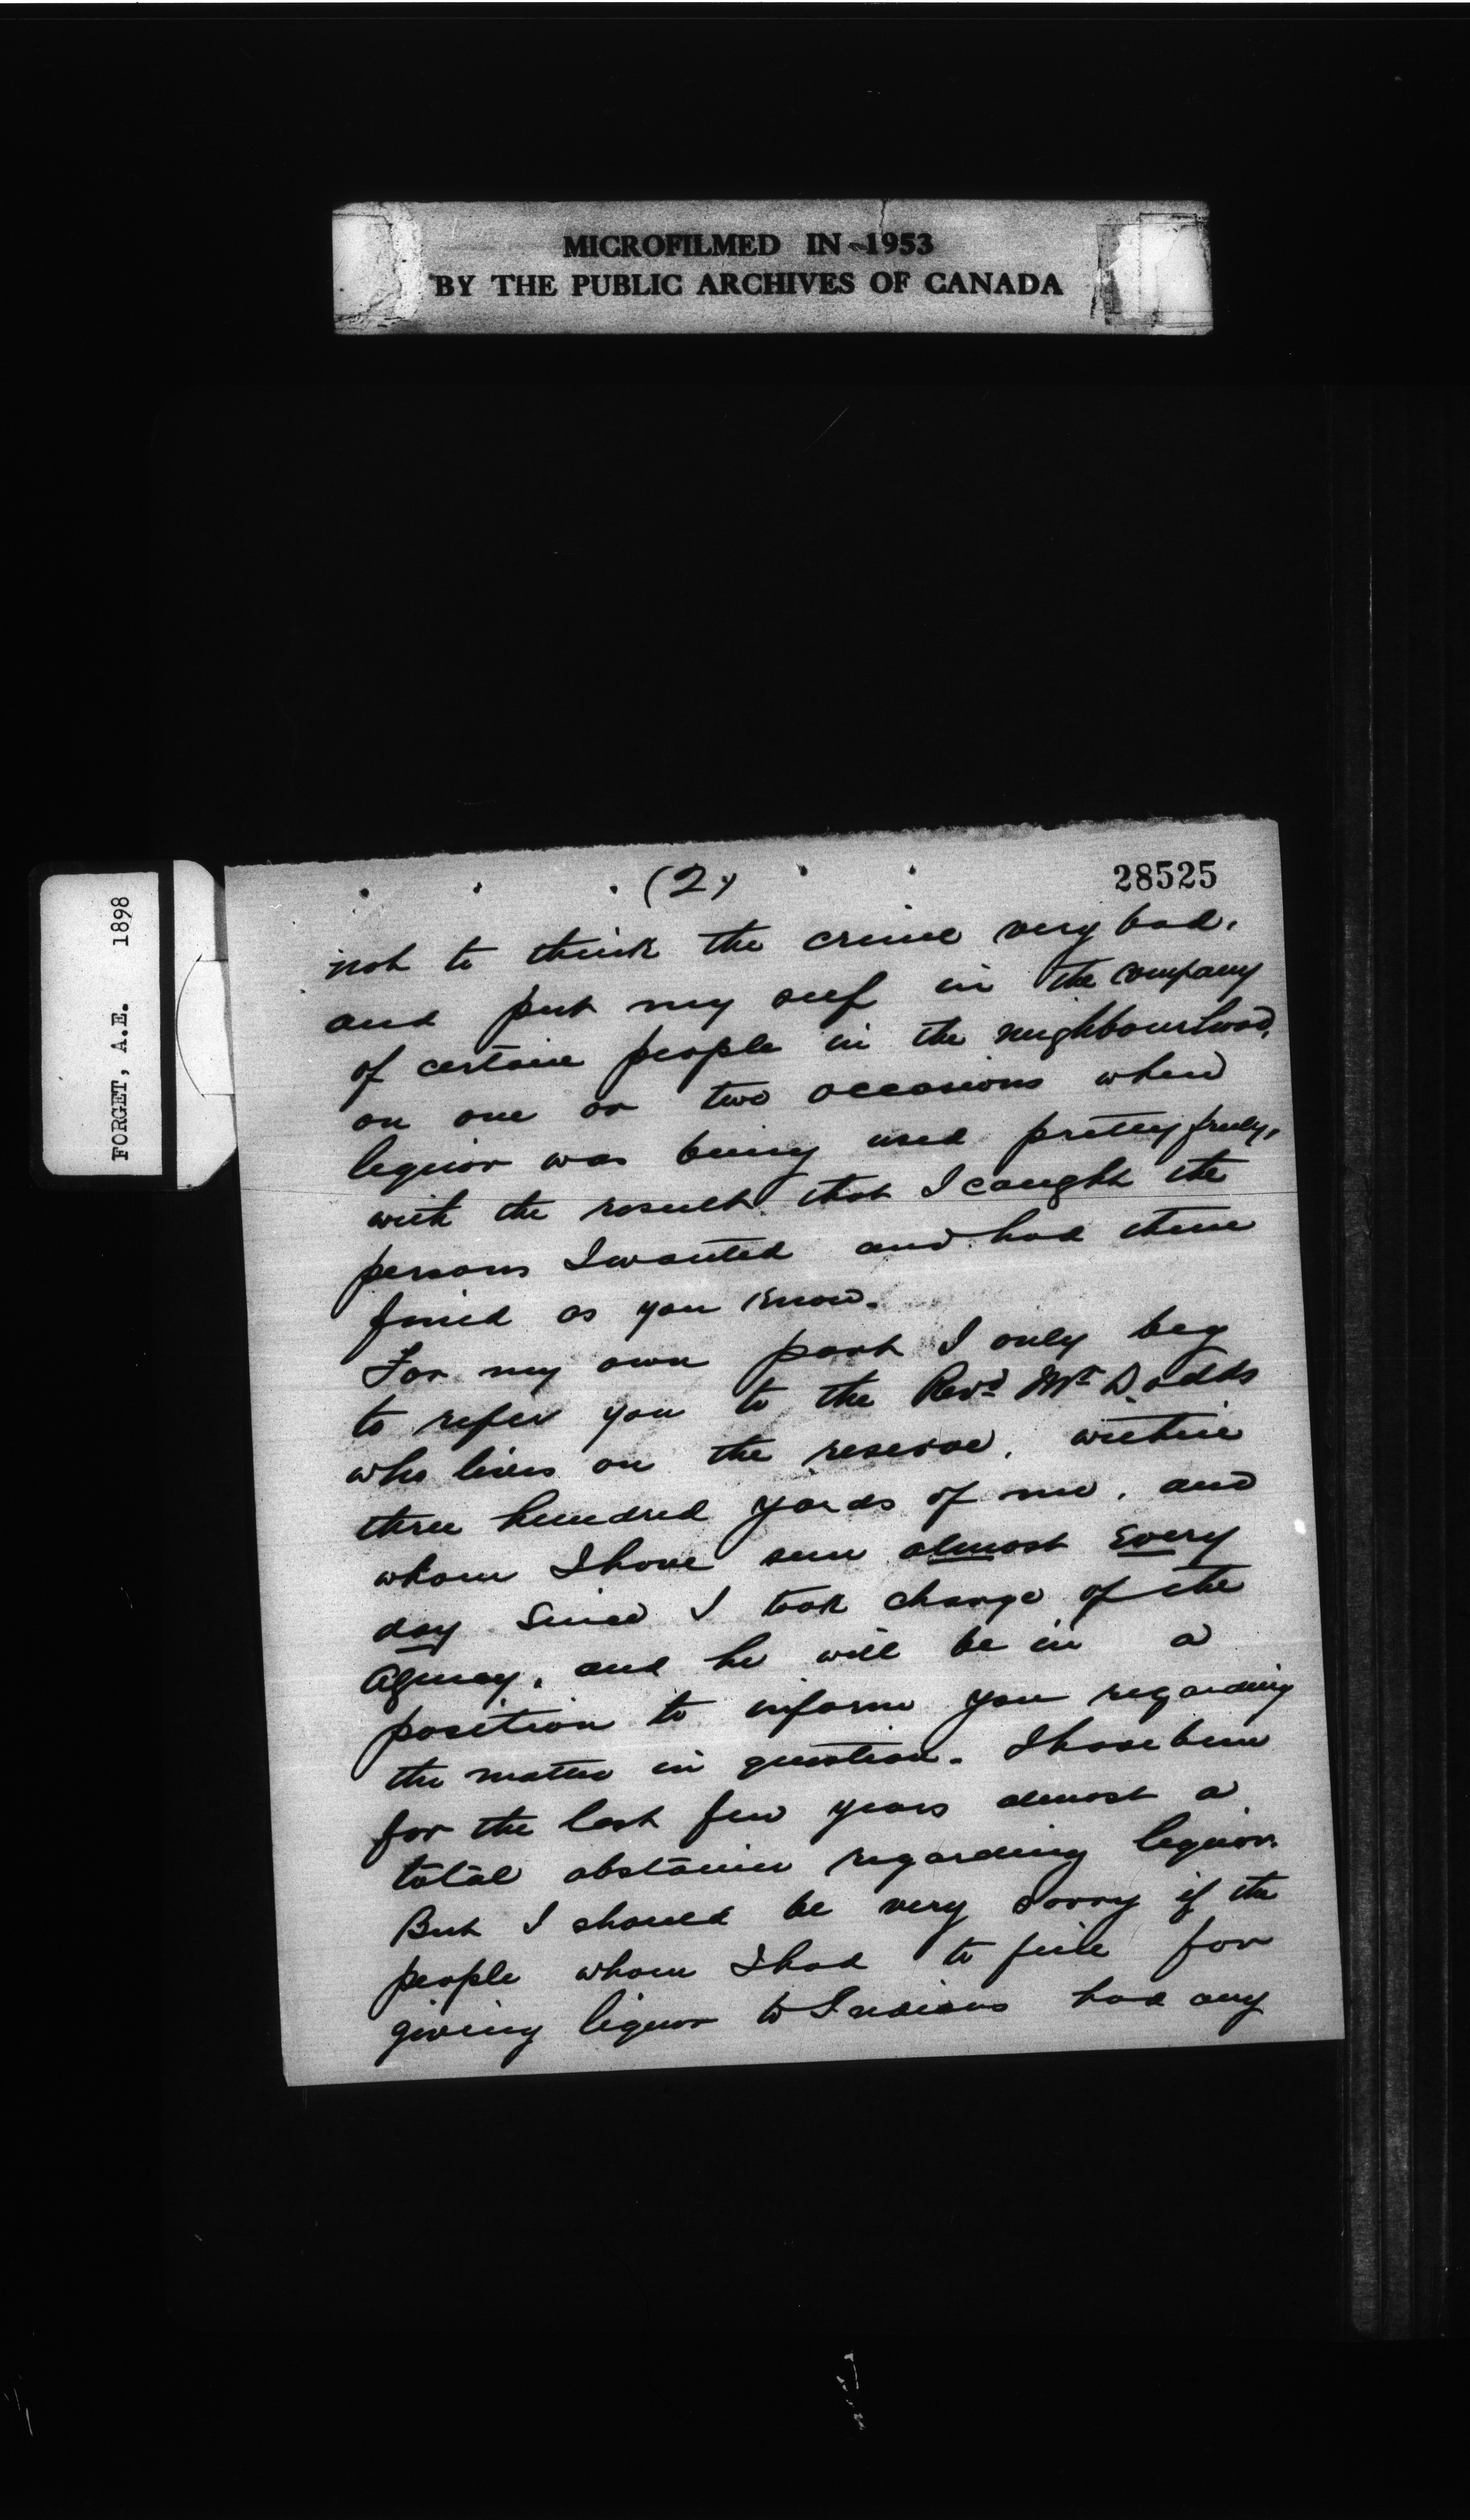 MICROFILMED IN 1953
BY THE PUBLIC ARCHIVES OF CANADA
FORGET, A.E. 1898
(2)
28525
not to think the crime very bad,
and put my self in the company
of certain people in the neighbourhood,
on one or two occasions when
liquor was being used pretty freely,
with the result that I caught the
persons I wanted and had them
fined as you know.
For my own part I only beg
to refer you to the Revd Mr Dodds
who lives on the reserve, within
three hundred yards of me, and
whom I have seen almost every
day since I took charge of the
Agency, and he will be in a
position to inform you regarding
the matter in question. I have been
for the last few years almost a
total abstainer regarding liquor.
But I should be very sorry if the
people whom I had to fine for
giving liquor to Indians had any